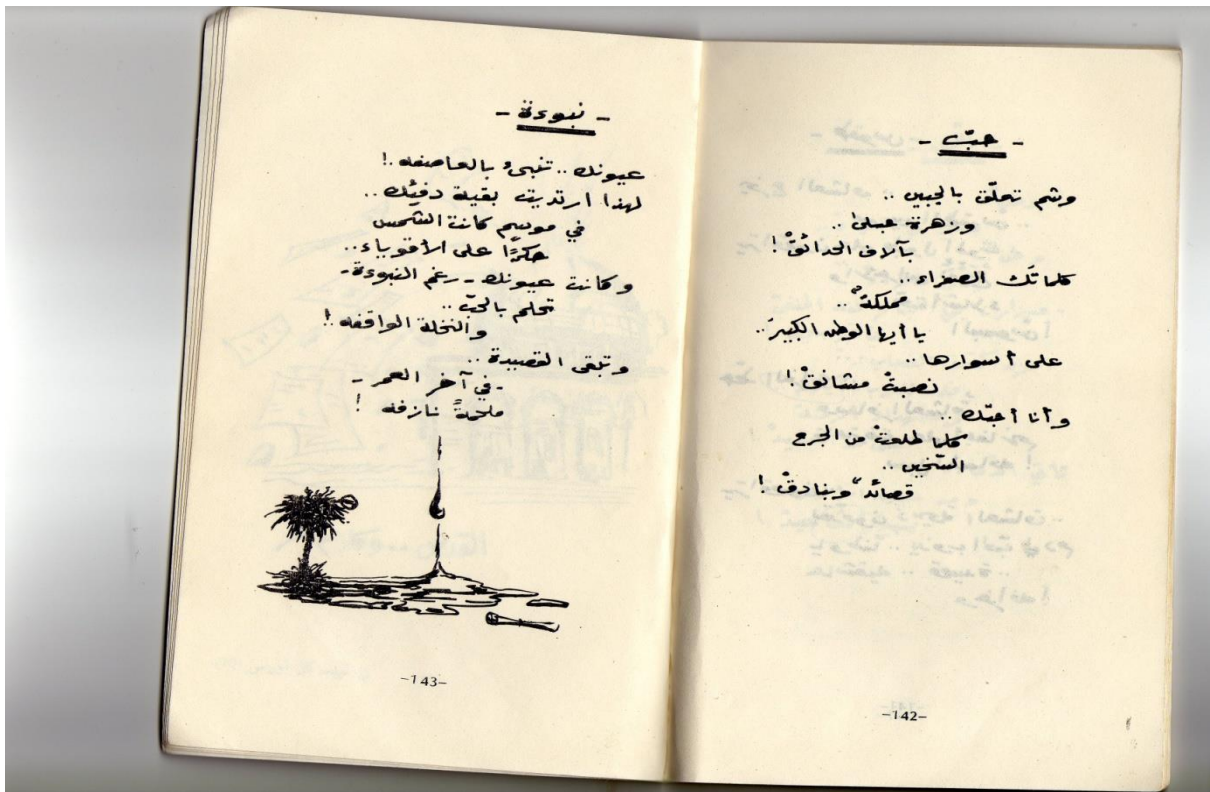 - حبّ -
وشم تعلّق بالجبين ..
وزهرة حبلى ..
بآلاف الحدائقْ !
كلماتك الصفراء ..
مملكةٌ ..
يا أيها الوطن الكبيرَ ..
على أسوارها ..
نصبتْ مشانقْ !
وأنا أحبّك ..
كلما طلعتْ من الجرح
السّخين ..
قصائدٌ وبنادقْ !
-142-
- نبوءة -
عيونك .. تنبئ بالعاصفه .!
لهذا ارتديت بقية دفئك ..
في موسم كانت الشمس
حكرًا على الأقوياء ..
وكانت عيونك - رغم النبوءة -
تحلم بالحبّ ..
والنخلة الواقفه .!
وتبقى القصيدة ..
- في آخر العمر -
ملحمةً نازفه !
-143-